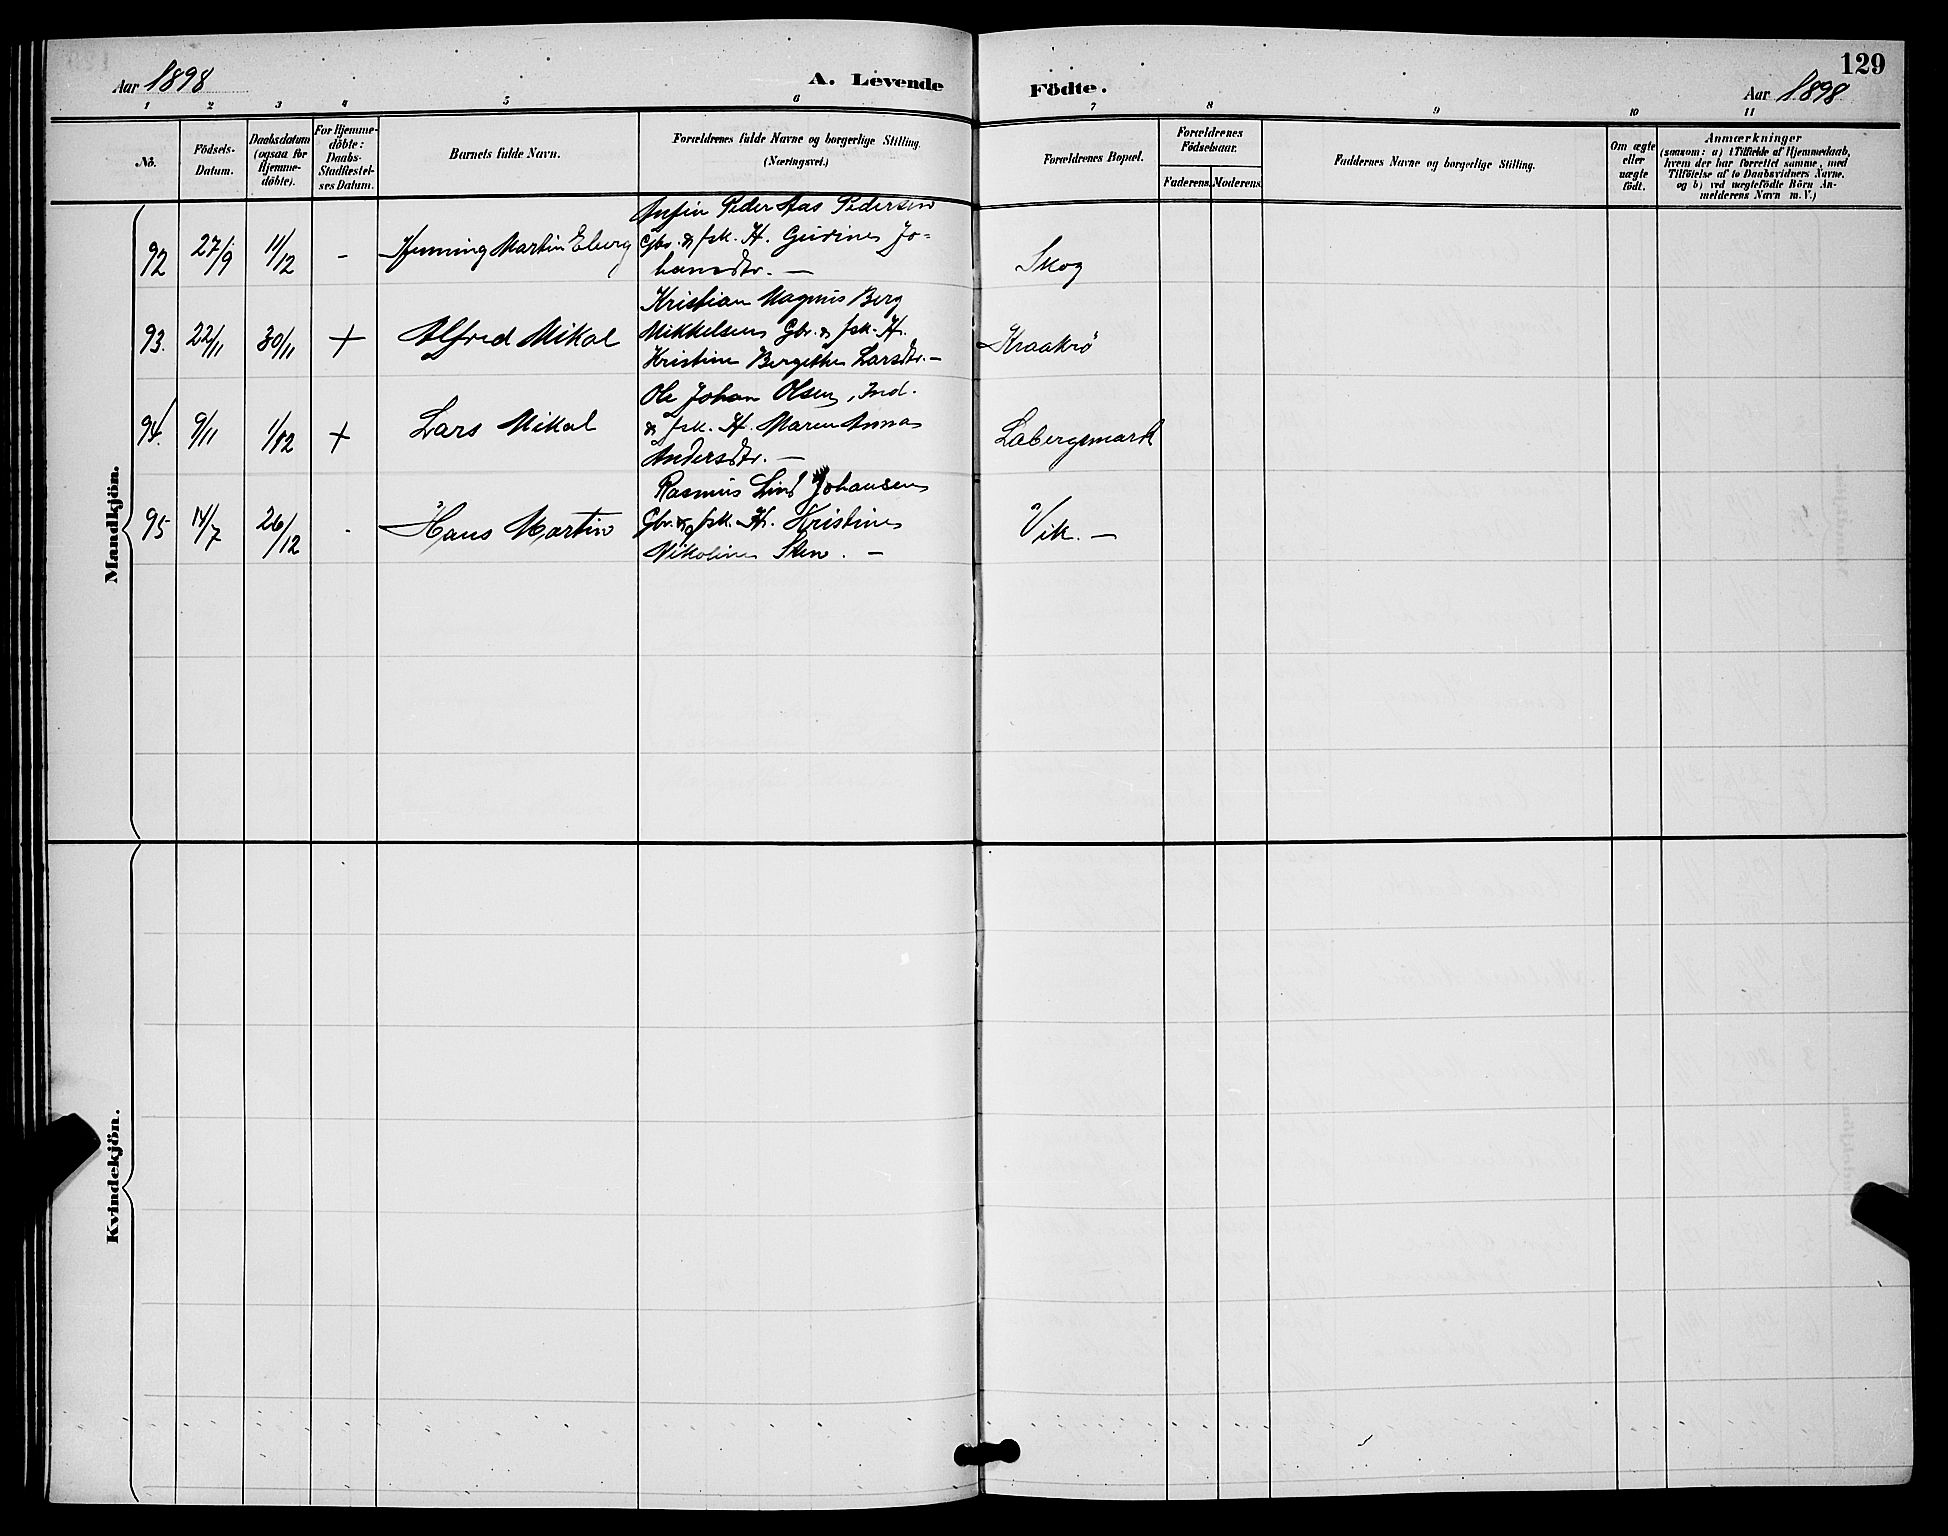 129
Aar 1898
A. Levende Födte.
Aar 1898
1 2 3 4 5 6 7 8 9 10 11
No.
Födsels-
Datum.
Daabsdatum
(ogsaa for
Hjemme-
döbte).
For Hjemme-
döbte:
Daabs-
Stadfæstel-
ses Datum.
Barnets fulde Navn.
Forældrenes fulde Navne og borgerlige Stilling.
(Næringsvei.)
Forældrenes Bopæl.
Forældrenes
Födselsaar.
Faderens. Moderens.
Faddernes Navne og borgerlige Stilling.
Om ægte
eller
uægte
födt.
Anmærkninger
(saasom: a) i Tilfælde af Hjemmedaab,
hvem der har forrettet samme, med
Tilföielse af to Daabsvidners Navne.
og b) ved uægtefödte Börn An-
melderens Navn m. V.)
Mandkjön.
92 27/9 11/12 - Henning Martin Eberg
Anfin Peder Aas Pedersen
Gbr. & fsk. H. Gurine Jo-
hansdtr. —
Skog
93. 22/11 30/11 + Alfred Mikal
Kristian Magnus Berg
Mikkelsen Gbr. & fsk. H.
Kristine Bergithe Larsdtr. —
Kraakrø
94. 9/11 1/12 + Lars Mikal
Ole Johan Olsen, Ind.
& fsk. H. Maren Anna
Andersdtr. —
Labergsmark
95 14/7 26/12 - Hans Martin
Rasmus Lind Johansen
Gbr. & fsk. H. Kristine
Nikoline Sten. —
Vik. —
Kvindekjön.